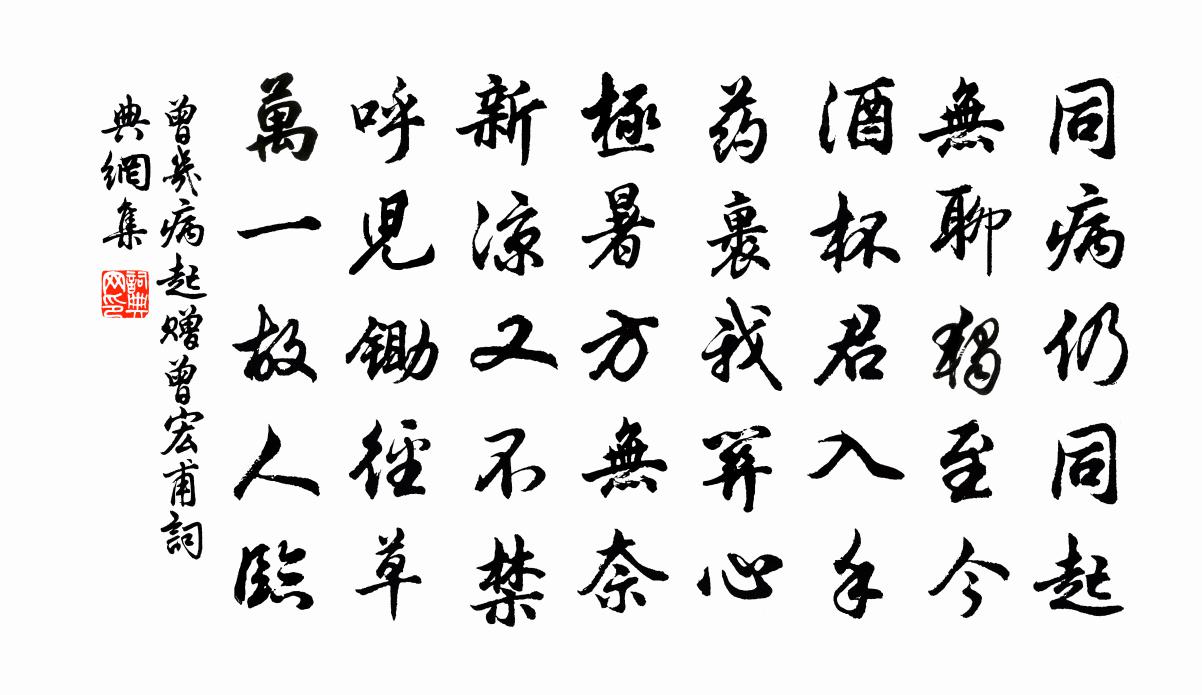 同病仍同起
無聊獨至今
酒杯君入手
药裹我關心
極暑方無奈
新凉又不禁
呼児鋤徑草
萬一故人臨
曾幾病起赠曾宏甫詞
典網集
詞典
网印